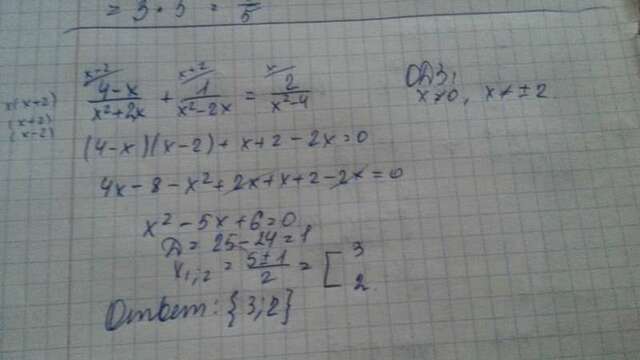 = 3 · 5 = — 5
x-2 x+2 x
x(x+2) (4-x)/(x²+2x) + 1/(x²-2x) = 2/(x²-4) ОДЗ:
(x+2) x≠0, x≠±2
(x-2)
(4-x)(x-2)+x+2-2x=0
4x-8-x²+2x+x+2-2x=0
x²-5x+6=0
Д=25-24=1
x₁;₂ = (5±1)/2 = [ 3
2
Ответ: {3;2}